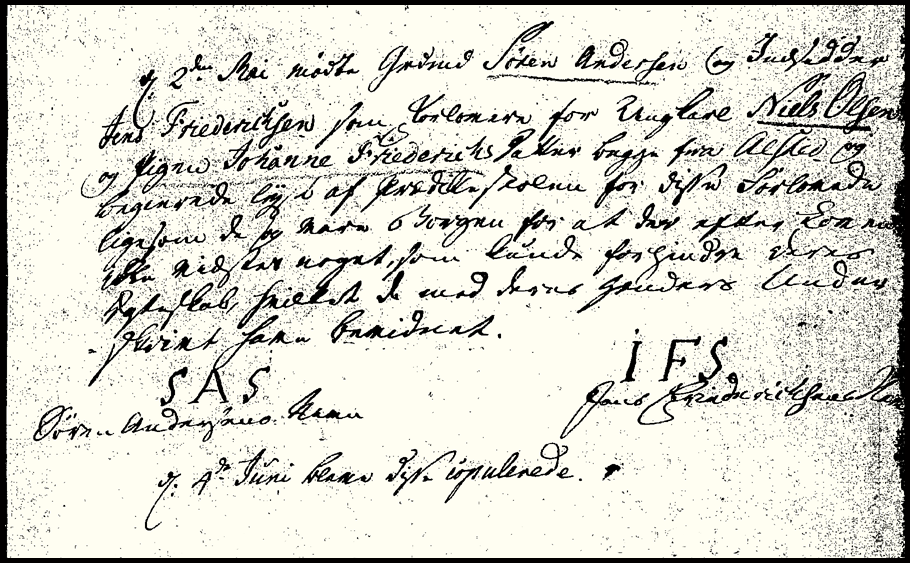 d. 2den Mai mødte Grdmd Søren Andersen og Indsidder
Jens Friederichsen som Forlovere for Ungkarl Niels Olsen
og Pigen Johanne Friederichs Datter begge fra Alsted og
begierede lyst af Prædikestolen for disse Forlovede
ligesom de og vare Borgen for at der efter Loven
ikke vidstes noget, som kunde forhindre deres
Egteskab, hvilket de med deres Hænders Under
skrivt have bevidnet.
SAS
IFS.
Søren Andersens Navn
Jens Friederichsens
d. 4de Juni bleve disse copulerede.